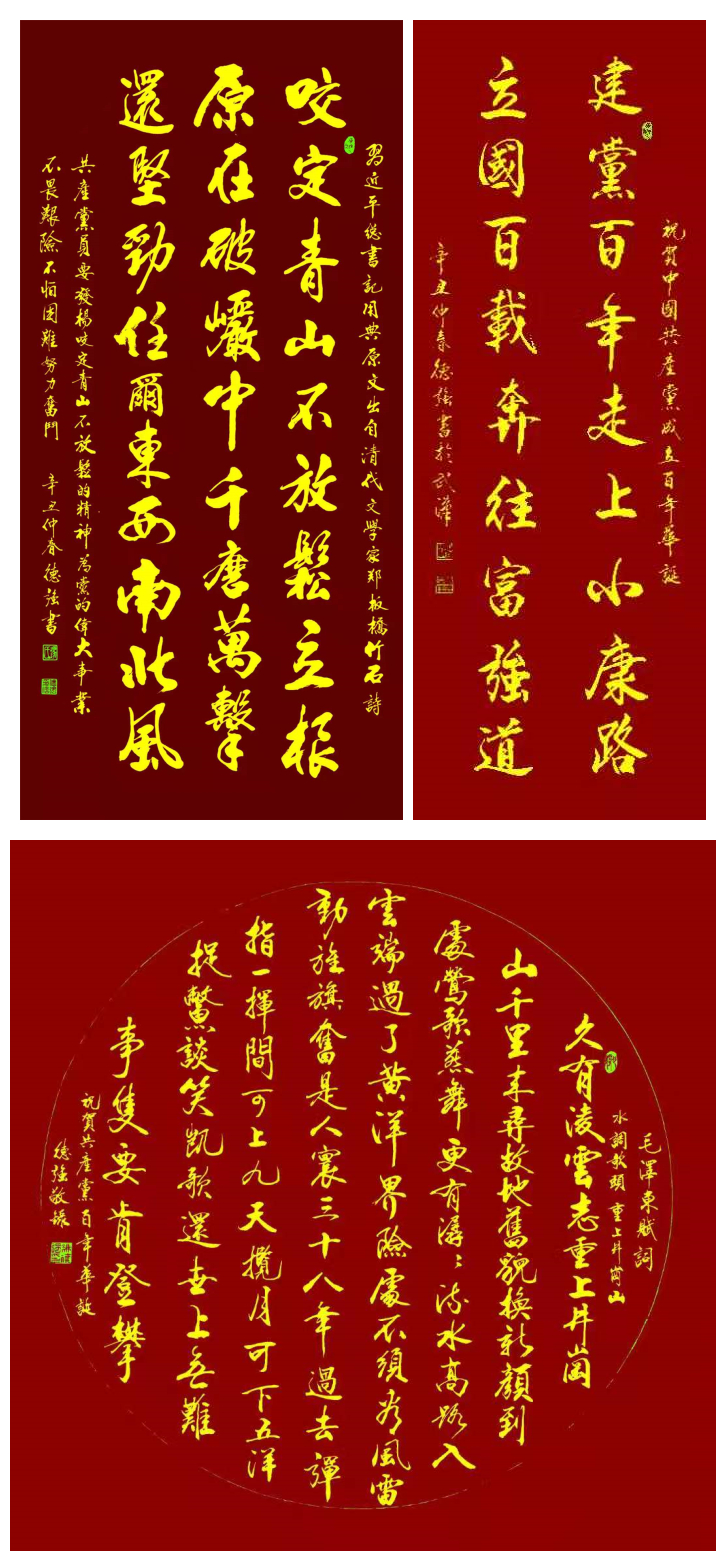 習近平總書記用典原文出自清代文學家鄭板橋竹石詩
咬定青山不放鬆立根
原在破巖中千磨萬擊
還堅勁任爾東西南北風
共產黨員要發揚咬定青山不放鬆的精神為黨的偉大事業
不畏艱險不怕困難努力奮鬥 辛丑仲春德強書
祝賀中國共產黨成立百年華誕
建黨百年走上小康路
立國百載奔往富強道
辛丑仲春德強書於武漢
毛澤東賦詞
水調歌頭 重上井崗山
久有淩雲志重上井崗
山千里來尋故地舊貌換新顏到
處鶯歌燕舞更有潺々流水高路入
雲端過了黃洋界險處不須看風雷
動旌旗奮是人寰三十八年過去彈
指一揮間可上九天攬月可下五洋
捉鱉談笑凱歌還世上無難
事隻要肯登攀
祝賀共產黨百年華誕
德強敬